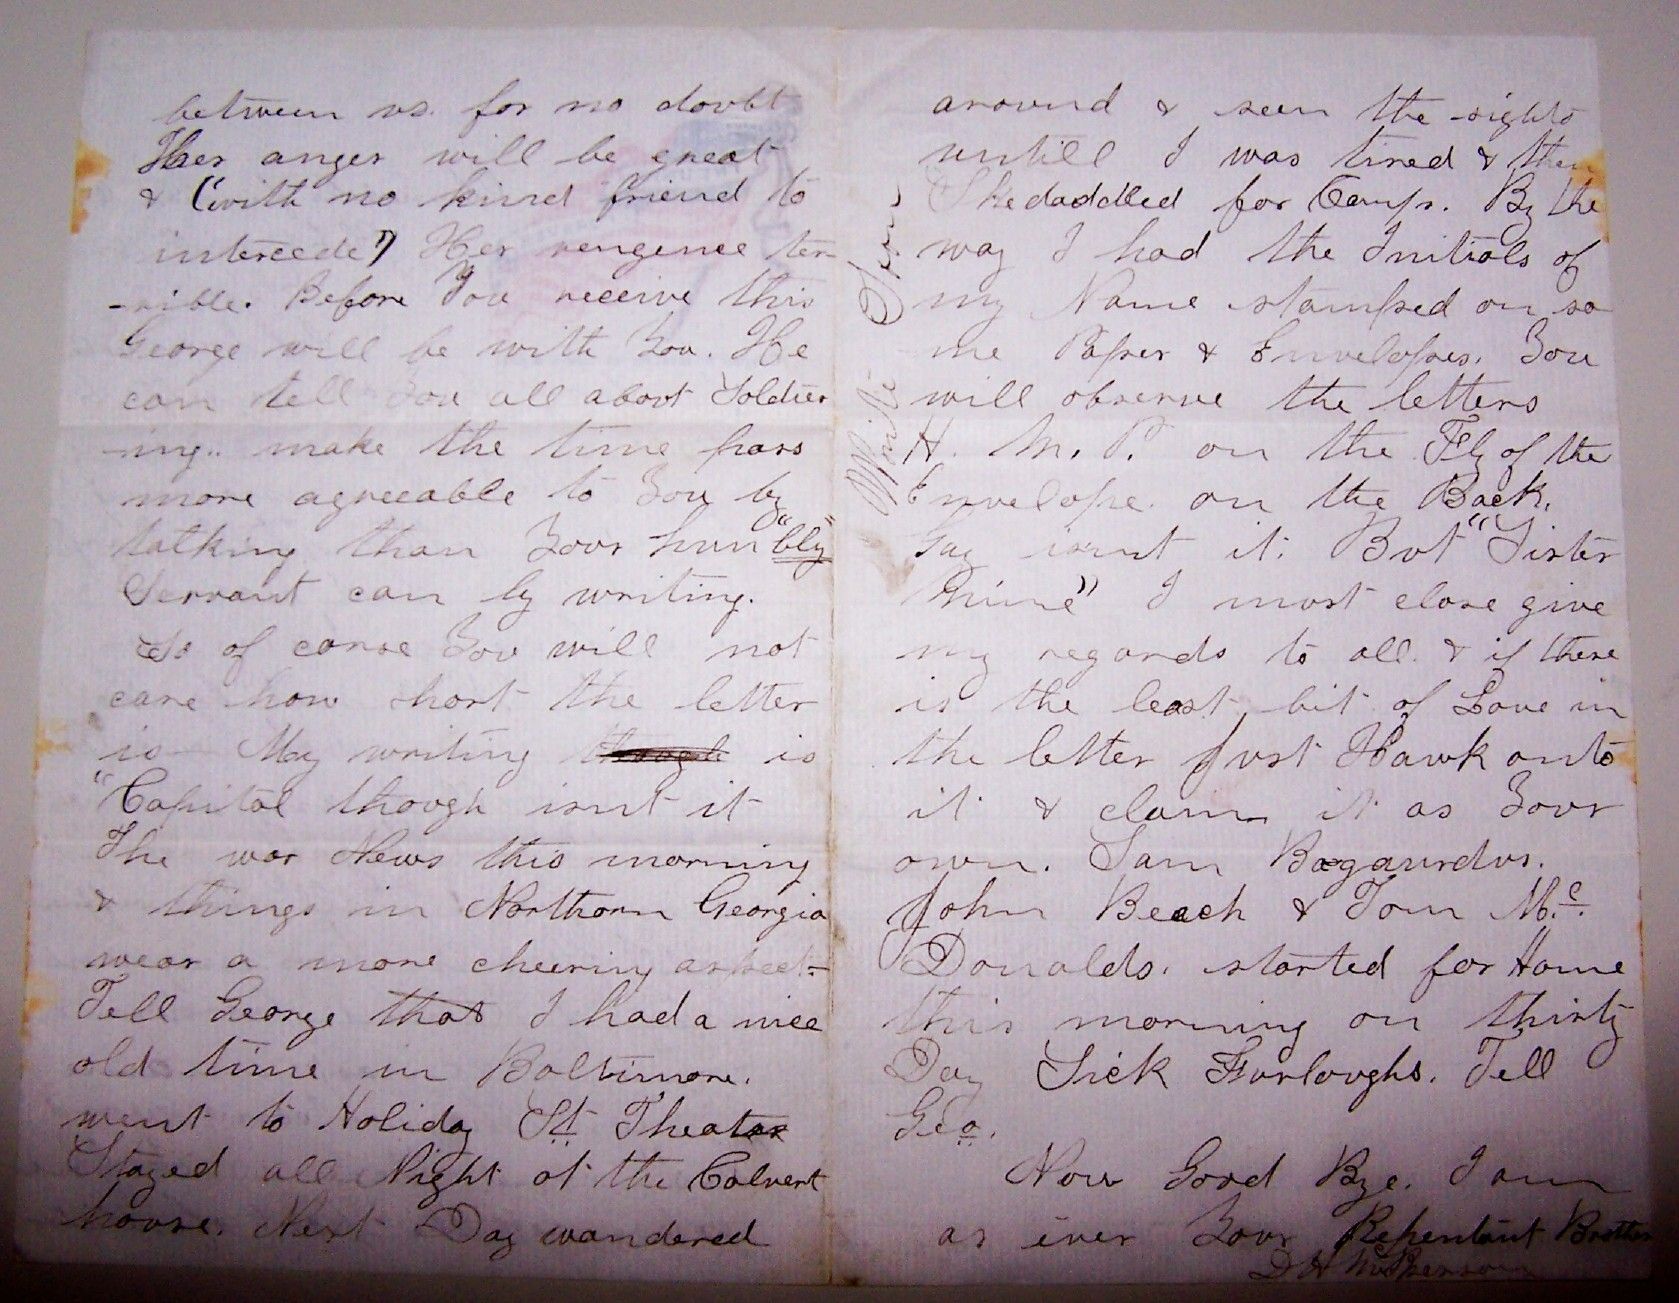 between us. for no doubt
Her anger will be great
& "(with no kind friend to
intercede") Her vengence ter-
-rible. Before You receive this
George will be with You. He
can tell You all about Soldier
-ing.. make the time pass
more agreeable to You by
talking than Your hum "bly"
Servant can by writing.
So of corse You will not
care how short the letter
is - My writing though is
"Capitol though isnt it
The war News this morning
& things in Northorn Georgia
wear a more cheering aspect=
Tell George that I had a nice
old time in Baltimore.
went to Holiday St Theater
Stayed all Night at the Calvert
house. Next Day wandered
around & seen the sights
untill I was tired & then
Skedaddled for Camp. By the
way I had the Initials of
my Name stamped on so
me Paper & Envelopes. You
will observe the letters
H. M. P. on the Fly of the
Envelope. on the Back.
Gay isnt it. But "Sister
Mine" I must close give
my regards to all. & if there
is the least bit of Love in
the letter just Hawk onto
it & claim it as Your
own. Sam Bogaurdus.
John Beach & Tom Mc.
Donalds. started for Home
this morning on thirty
Day Sick Furloughs. Tell
Geo.
Now Good Bye. I am
as ever Your Repentant Brother
D H McPherson
Write Soon